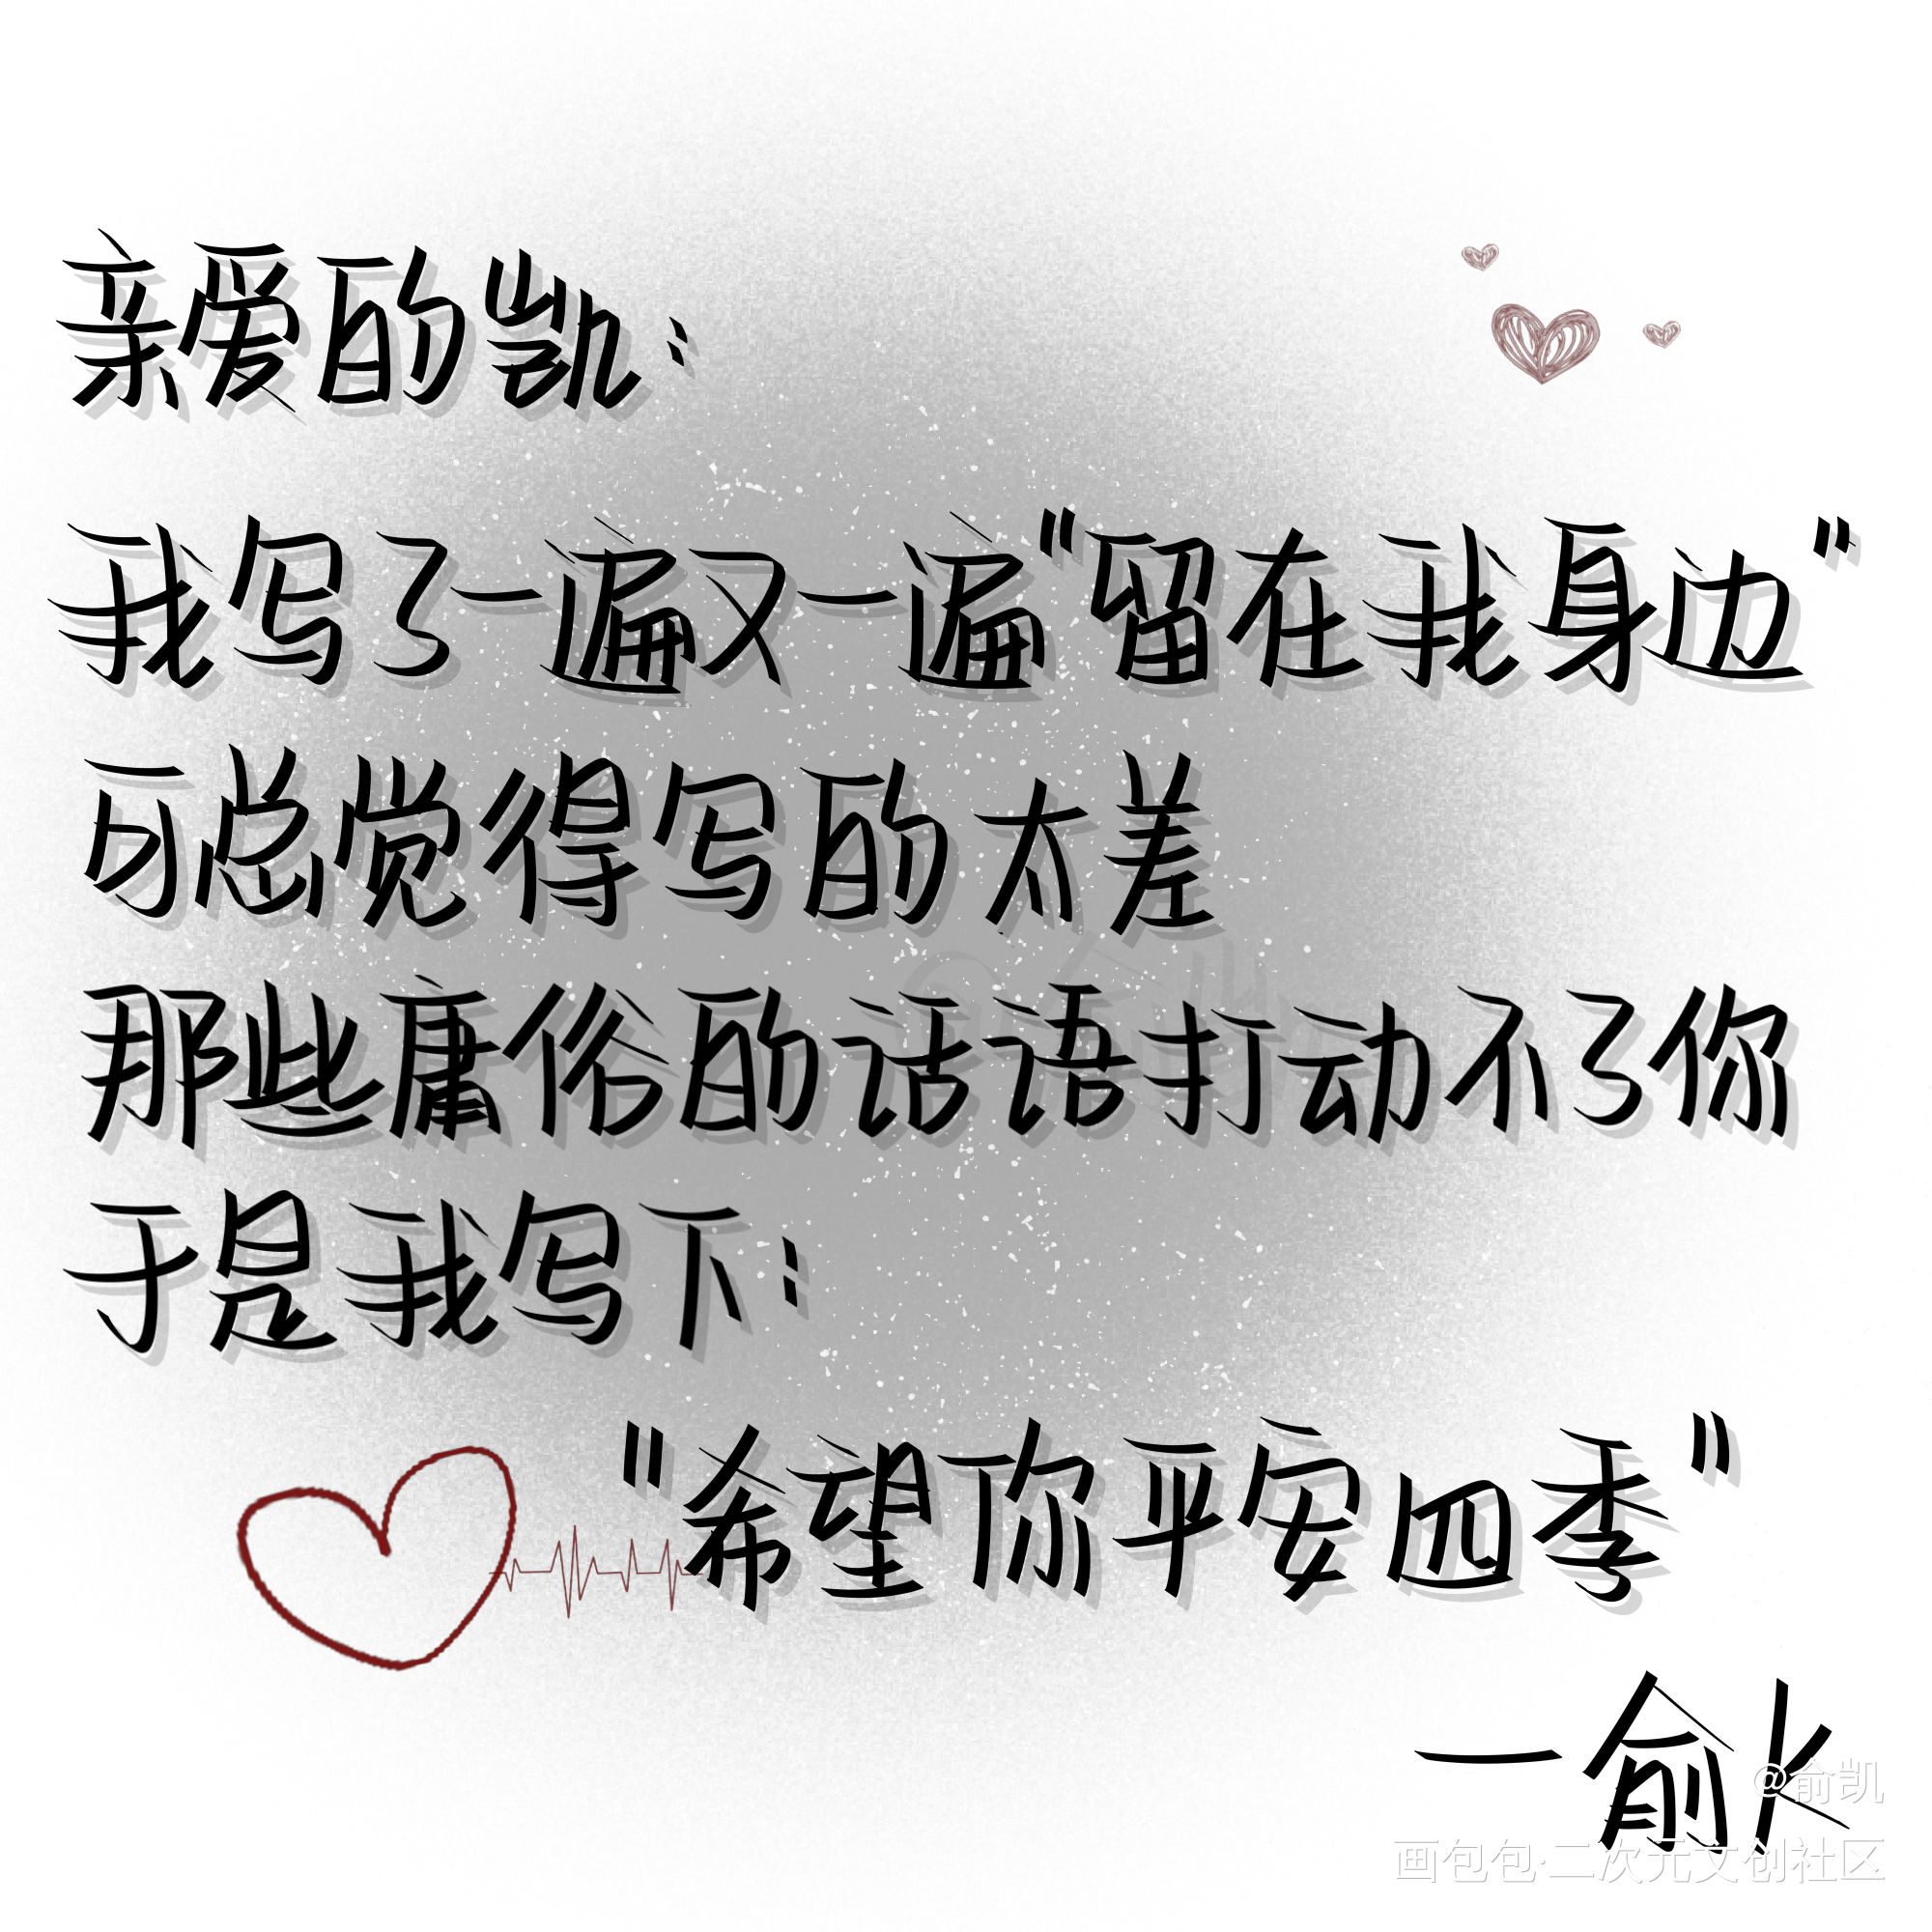 亲爱的凯：
我写了一遍又一遍"留在我身边"
可总觉得写的太差
那些庸俗的话语打动不了你
于是我写下：
"希望你平安四季"
一俞K
@俞凯
画包包·二次元文创社区